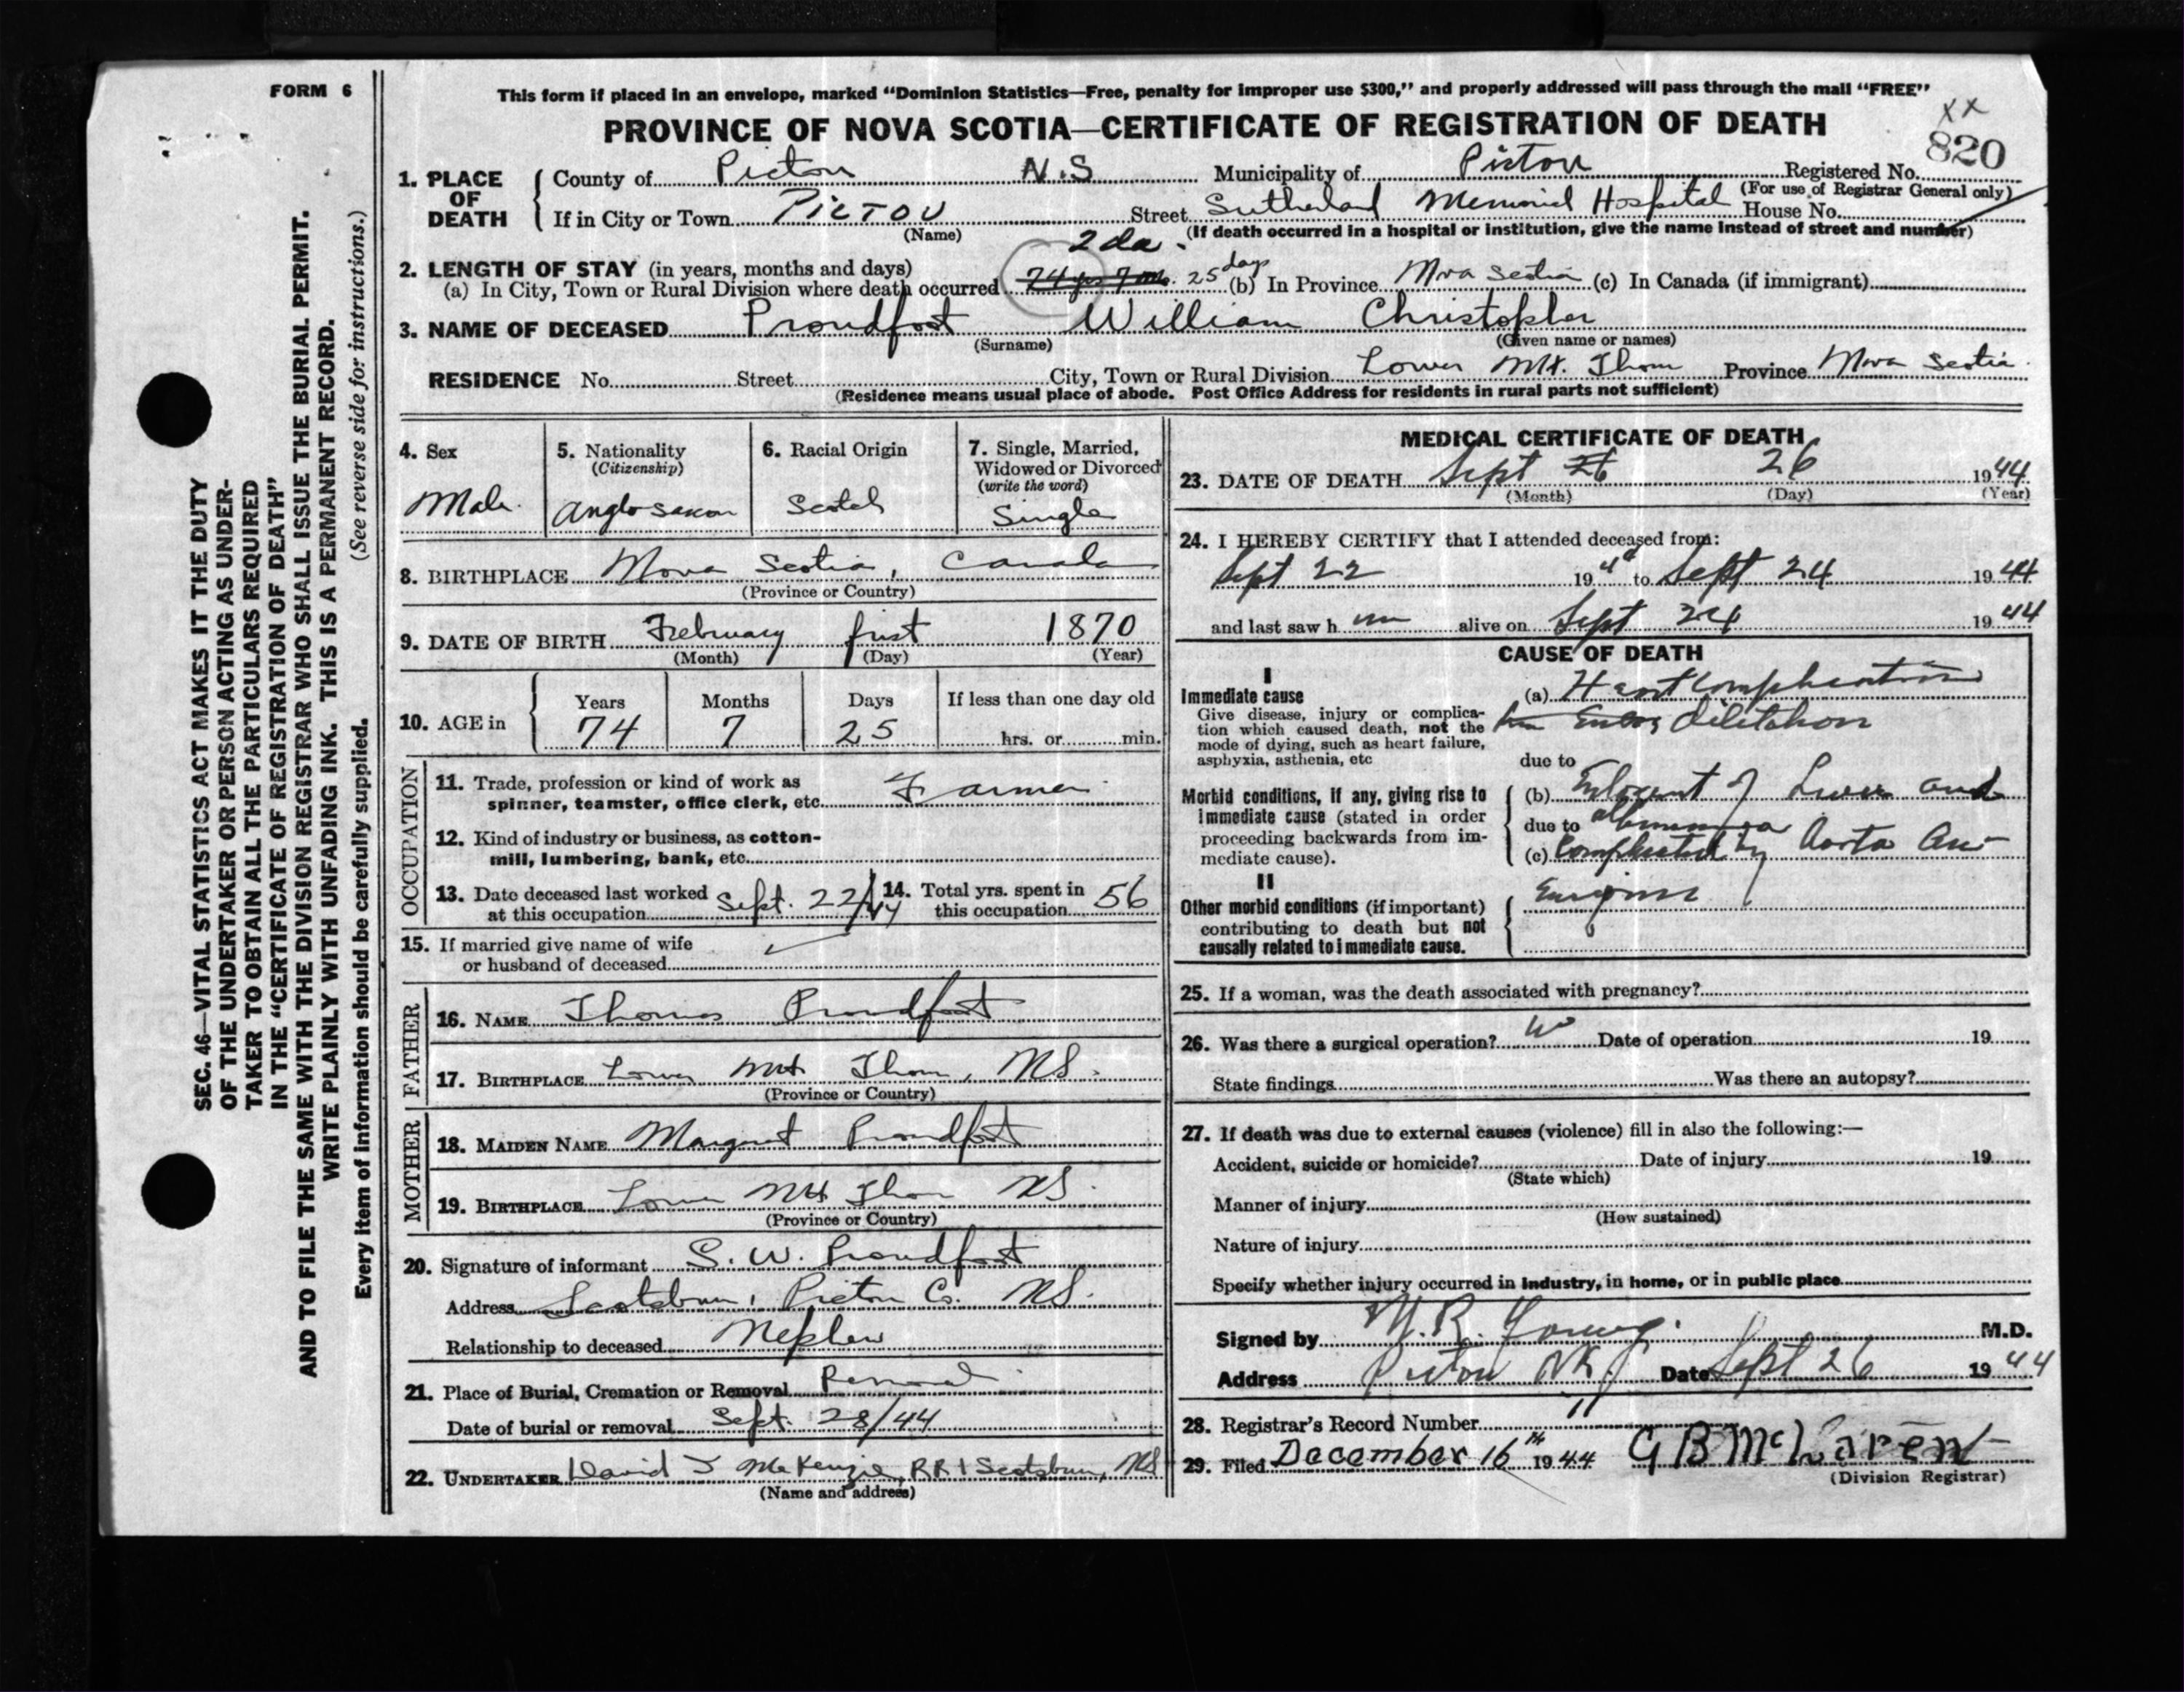 FORM 6
This form if placed in an envelope, marked “Dominion Statistics—Free, penalty for improper use $300,” and properly addressed will pass through the mail “FREE”
PROVINCE OF NOVA SCOTIA—CERTIFICATE OF REGISTRATION OF DEATH
XX
820
1. PLACE OF DEATH
County of Pictou N.S Municipality of Pictou Registered No.
(For use of Registrar General only)
If in City or Town PICTOU Street Sutherland Memorial Hospital House No.
(Name) (If death occurred in a hospital or institution, give the name instead of street and number)
2 da.
2. LENGTH OF STAY (in years, months and days)
(a) In City, Town or Rural Division where death occurred 74 yrs 7 mo. 25 days (b) In Province Nova Scotia (c) In Canada (if immigrant)
3. NAME OF DECEASED Proudfoot William Christopher
(Surname) (Given name or names)
RESIDENCE No. Street City, Town or Rural Division Lower Mt. Thom Province Nova Scotia
(Residence means usual place of abode. Post Office Address for residents in rural parts not sufficient)
4. Sex
Male
5. Nationality
(Citizenship)
Anglo Saxon
6. Racial Origin
Scotch
7. Single, Married,
Widowed or Divorced
(write the word)
Single
8. BIRTHPLACE Nova Scotia, Canada
(Province or Country)
9. DATE OF BIRTH February first 1870
(Month) (Day) (Year)
10. AGE in
Years Months Days If less than one day old
74 7 25 hrs. or min.
OCCUPATION
11. Trade, profession or kind of work as
spinner, teamster, office clerk, etc. Farmer
12. Kind of industry or business, as cotton-
mill, lumbering, bank, etc.
13. Date deceased last worked
at this occupation Sept. 22/44
14. Total yrs. spent in
this occupation 56
15. If married give name of wife
or husband of deceased
FATHER
16. NAME Thomas Proudfoot
17. BIRTHPLACE Lower Mt Thom, NS.
(Province or Country)
MOTHER
18. MAIDEN NAME Margaret Proudfoot
19. BIRTHPLACE Lower Mt Thom NS.
(Province or Country)
20. Signature of informant S. W. Proudfoot
Address Scotsburn, Pictou Co. NS.
Relationship to deceased Nephew
21. Place of Burial, Cremation or Removal Removal
Date of burial or removal Sept. 28/44
22. UNDERTAKER David J McKenzie, RR 1 Scotsburn, NS
(Name and address)
MEDICAL CERTIFICATE OF DEATH
23. DATE OF DEATH Sept 26 26 1944
(Month) (Day) (Year)
24. I HEREBY CERTIFY that I attended deceased from:
Sept 22 1944 to Sept 24 1944
and last saw h im alive on Sept 24 1944
CAUSE OF DEATH
I
Immediate cause
Give disease, injury or complica-
tion which caused death, not the
mode of dying, such as heart failure,
asphyxia, asthenia, etc
(a) Heart complication
dilitation
due to
Morbid conditions, if any, giving rise to
immediate cause (stated in order
proceeding backwards from im-
mediate cause).
(b) of Liver and
due to
(c) Complicated by Aorta
II
Other morbid conditions (if important)
contributing to death but not
causally related to immediate cause.
25. If a woman, was the death associated with pregnancy?
26. Was there a surgical operation? no Date of operation 19
State findings Was there an autopsy?
27. If death was due to external causes (violence) fill in also the following:—
Accident, suicide or homicide? Date of injury 19
(State which)
Manner of injury
(How sustained)
Nature of injury
Specify whether injury occurred in industry, in home, or in public place
Signed by M. R. Young. M.D.
Address Pictou NS Date Sept 26 1944
28. Registrar's Record Number 11
29. Filed December 16th 1944 G B McLaren
(Division Registrar)
SEC. 46—VITAL STATISTICS ACT MAKES IT THE DUTY
OF THE UNDERTAKER OR PERSON ACTING AS UNDER-
TAKER TO OBTAIN ALL THE PARTICULARS REQUIRED
IN THE “CERTIFICATE OF REGISTRATION OF DEATH”
AND TO FILE THE SAME WITH THE DIVISION REGISTRAR WHO SHALL ISSUE THE BURIAL PERMIT.
WRITE PLAINLY WITH UNFADING INK. THIS IS A PERMANENT RECORD.
Every item of information should be carefully supplied. (See reverse side for instructions.)